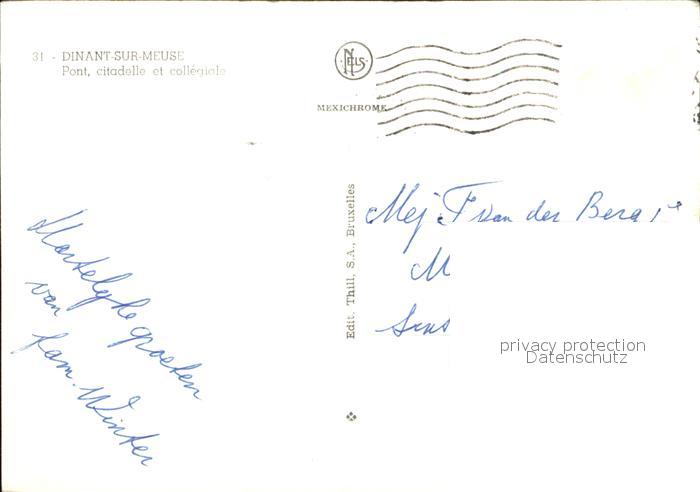 31 - DINANT-SUR-MEUSE
Pont, citadelle et collégiale
NELS
MEXICHROME
Edit. Thill, S.A., Bruxelles
Hartelyke groeten
van
fam. Winter
Mej. F van der Berg
M
privacy protection
Datenschutz